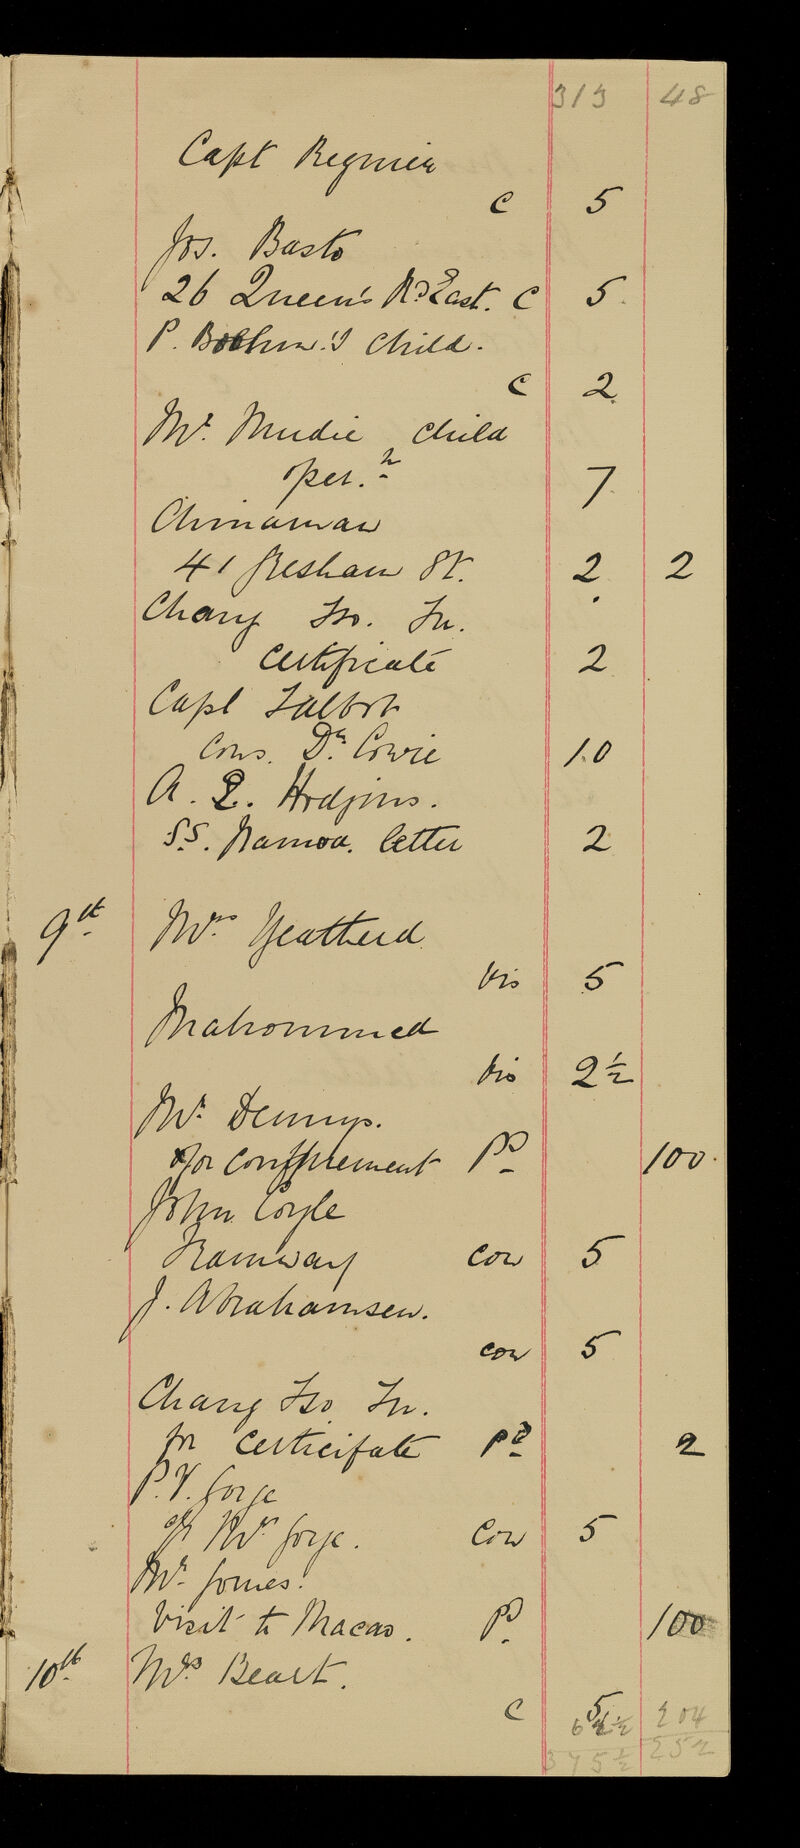 313 48
Capt Regnier
C 5
Jos. Basto
26 Queen's Rd East. C 5
P. child.
C 2
Mr. Mudie child
oper.n 7
Chinaman
41 Gresham St. 2 2
Chang Tso. In.
certificate 2
Capt Talbot
Cons. Dr. Cowie 10
A. Hodgins.
S.S. Namoa. letter 2
9th Mrs Yeatherd
Vis 5
Mahommed
Vis 2½
Mr. Dennys.
for confinement Pd 100.
John Coyle
Tramway con 5
J. Abrahamsen.
con 5
Chang Tso In.
for certicifate Pd 2
P.V. Jorge
of Mrs Jorge. Con 5
Mr. Gomes.
Visit to Macao. Pd 100
10th Mrs Beart.
C 5
62½ 204
375½ 252